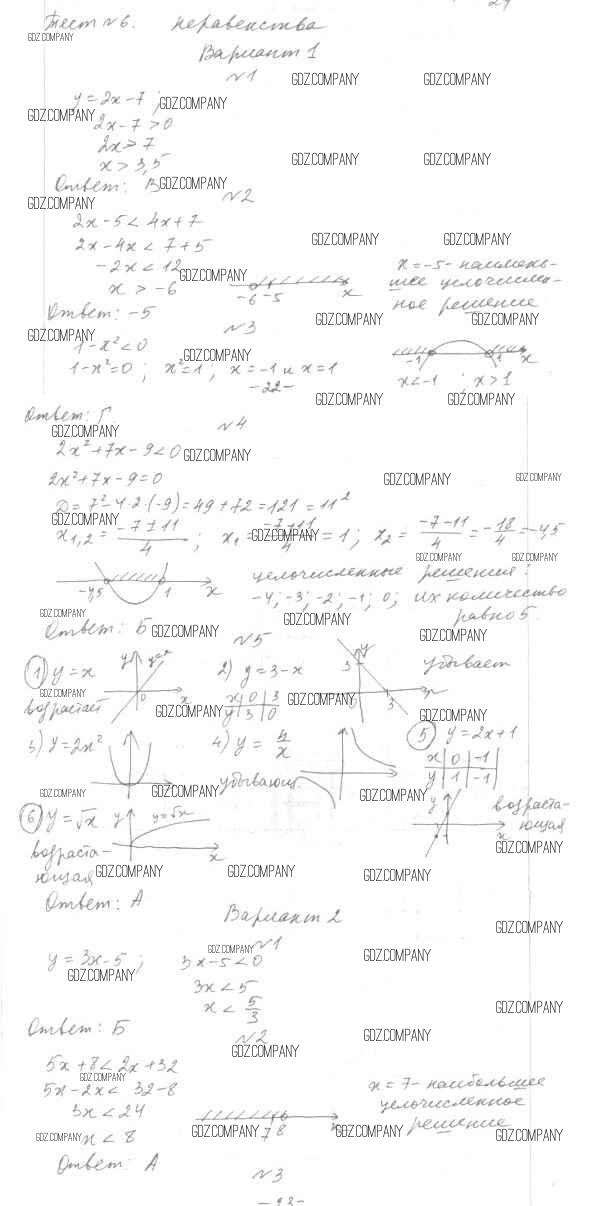 Тест №6. неравенства
GDZ.COMPANY
Вариант 1
№1 GDZ.COMPANY GDZ.COMPANY
y = 2x - 7 ; GDZ.COMPANY
GDZ.COMPANY
2x - 7 > 0
2x > 7
x > 3,5 GDZ.COMPANY GDZ.COMPANY
Ответ: В GDZ.COMPANY
GDZ.COMPANY №2
2x - 5 < 4x + 7
2x - 4x < 7 + 5 GDZ.COMPANY GDZ.COMPANY
-2x < 12 GDZ.COMPANY
x > -6
-6 -5 x
x = -5 - наимень-
шее целочислен-
ное решение
Ответ: -5
GDZ.COMPANY GDZ.COMPANY
№3
GDZ.COMPANY
1 - x² < 0 GDZ.COMPANY
1 - x² = 0 ; x² = 1 ; x = -1 и x = 1
-1 1 x
x < -1 ; x > 1
-22-
GDZ.COMPANY GDZ.COMPANY
Ответ: Г.
GDZ.COMPANY №4
2x² + 7x - 9 < 0 GDZ.COMPANY
2x² + 7x - 9 = 0 GDZ.COMPANY GDZ.COMPANY
D = 7² - 4·2·(-9) = 49 + 72 = 121 = 11²
GDZ.COMPANY
x₁,₂ = (-7 ± 11)/4 ; x₁ = (-7+11)/4 = 1 ; x₂ = (-7-11)/4 = -18/4 = -4,5
GDZ.COMPANY GDZ.COMPANY GDZ.COMPANY
-4,5 1 x
целочисленные решения:
-4; -3; -2; -1; 0; их количество
равно 5.
GDZ.COMPANY GDZ.COMPANY
Ответ: Б GDZ.COMPANY GDZ.COMPANY
№5
1) y = x y y=x 0 x
возрастает
GDZ.COMPANY
2) y = 3 - x
x 0 3
y 3 0
y 3 0 3 x
убывает
GDZ.COMPANY GDZ.COMPANY GDZ.COMPANY
3) y = 2x²
4) y =
убывающ.
5) y = 2x + 1
x 0 -1
y 1 -1
y x
возраста-
ющая
GDZ.COMPANY GDZ.COMPANY GDZ.COMPANY
6) y = √x y y=√x x
возраста-
ющая
GDZ.COMPANY
GDZ.COMPANY GDZ.COMPANY GDZ.COMPANY
Ответ: А
Вариант 2
GDZ.COMPANY
№1
GDZ.COMPANY GDZ.COMPANY
y = 3x - 5 ; 3x - 5 < 0
GDZ.COMPANY
3x < 5
x < 5/3 GDZ.COMPANY
Ответ: Б
№2 GDZ.COMPANY
GDZ.COMPANY
5x + 8 < 2x + 32
GDZ.COMPANY
5x - 2x < 32 - 8
3x < 24
x < 8
7 8 x
x = 7 - наибольшее
целочисленное
решение
GDZ.COMPANY GDZ.COMPANY GDZ.COMPANY GDZ.COMPANY
Ответ: А
№3